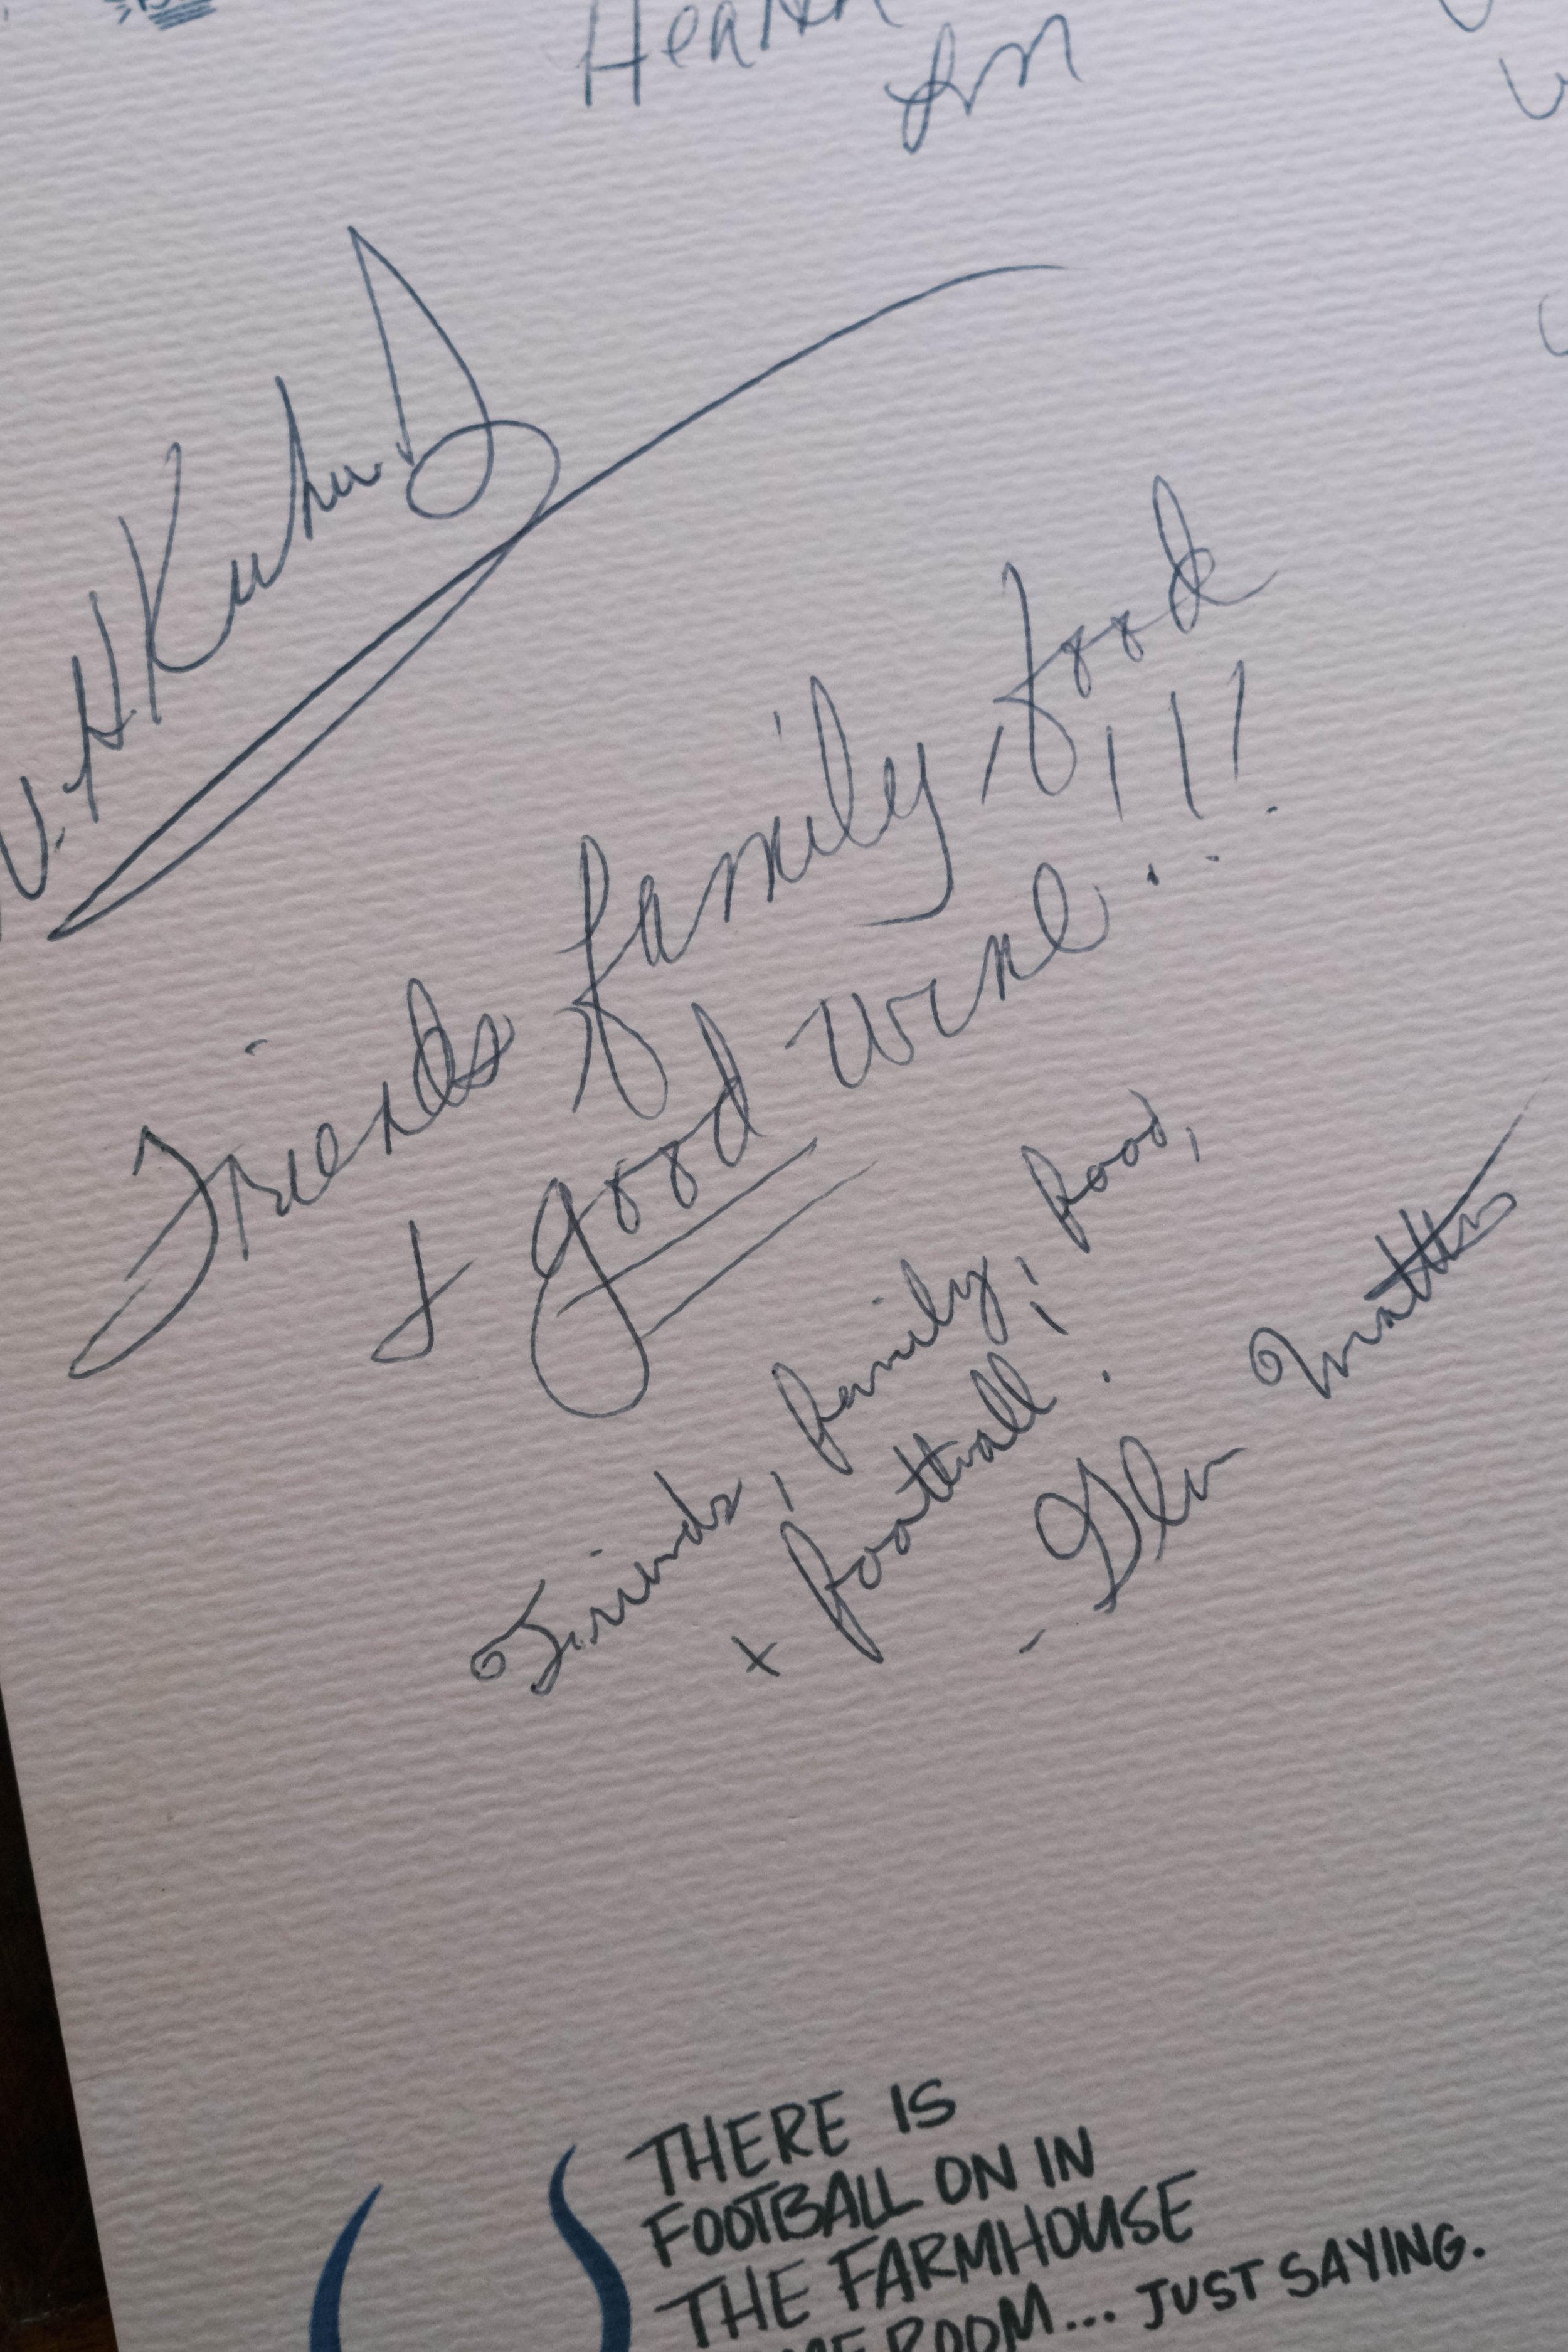 Health
Friends family food
& good wine!!!
Friends, family, food,
+ football!
- Glen Matthews
THERE IS
FOOTBALL ON IN
THE FARMHOUSE
ROOM... JUST SAYING.